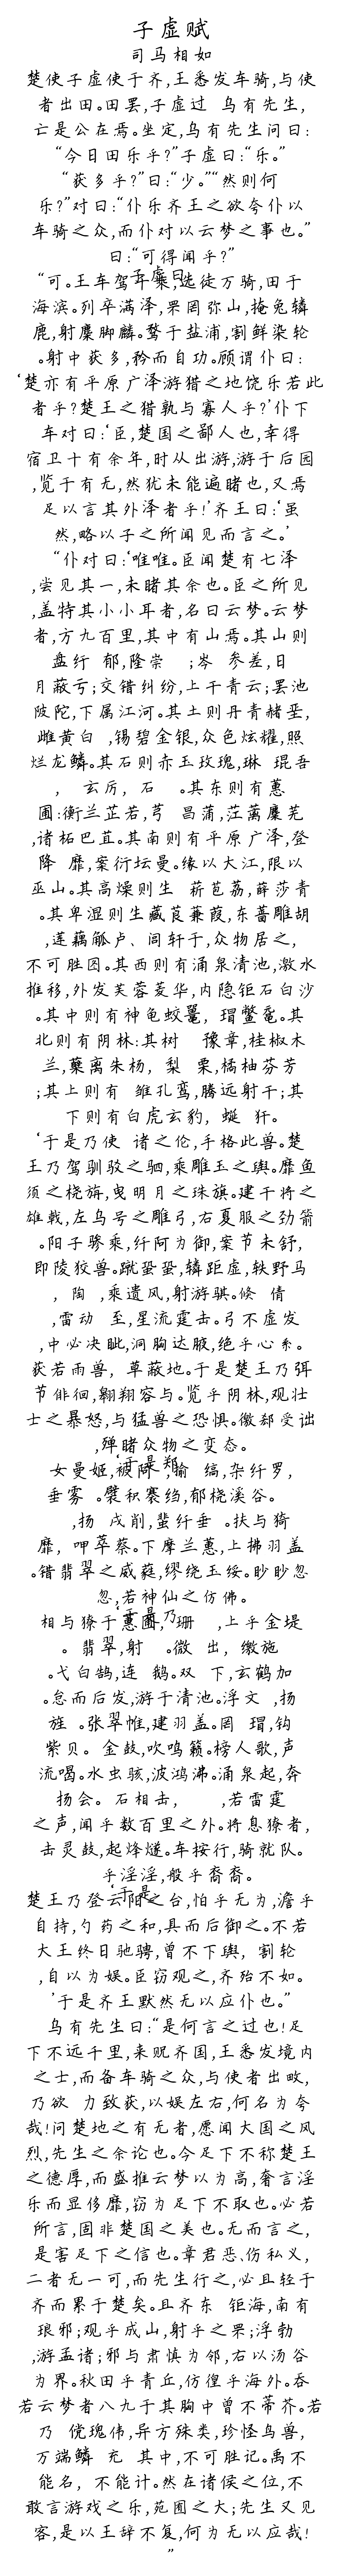 子虚赋
司马相如
楚使子虚使于齐,王悉发车骑,与使
者出田。田罢,子虚过 乌有先生,
亡是公在焉。坐定,乌有先生问曰:
“今日田乐乎?”子虚曰:“乐。”
“获多乎?”曰:“少。”“然则何
乐?”对曰:“仆乐齐王之欲夸仆以
车骑之众,而仆对以云梦之事也。”
曰:“可得闻乎?”
子虚曰:
“可。王车驾千乘,选徒万骑,田于
海滨。列卒满泽,罘罔弥山,掩兔辚
鹿,射麋脚麟。鹜于盐浦,割鲜染轮
。射中获多,矜而自功。顾谓仆曰:
‘楚亦有平原广泽游猎之地饶乐若此
者乎?楚王之猎孰与寡人乎?’仆下
车对曰:‘臣,楚国之鄙人也,幸得
宿卫十有余年,时从出游,游于后园
,览于有无,然犹未能遍睹也,又焉
足以言其外泽者乎!’齐王曰:‘虽
然,略以子之所闻见而言之。’
“仆对曰:‘唯唯。臣闻楚有七泽
,尝见其一,未睹其余也。臣之所见
,盖特其小小耳者,名曰云梦。云梦
者,方九百里,其中有山焉。其山则
盘纡 郁,隆崇 ;岑 参差,日
月蔽亏;交错纠纷,上干青云;罢池
陂陀,下属江河。其土则丹青赭垩,
雌黄白 ,锡碧金银,众色炫耀,照
烂龙鳞。其石则赤玉玫瑰,琳 琨吾
, 玄厉, 石 。其东则有蕙
圃:衡兰芷若,芎 菖蒲,茳蓠麋芜
,诸柘巴苴。其南则有平原广泽,登
降 靡,案衍坛曼。缘以大江,限以
巫山。其高燥则生 菥苞荔,薛莎青
。其卑湿则生藏莨蒹葭,东蔷雕胡
,莲藕觚卢、闾轩于,众物居之,
不可胜图。其西则有涌泉清池,激水
推移,外发芙蓉菱华,内隐钜石白沙
。其中则有神龟蛟鼍, 瑁鳖鼋。其
北则有阴林:其树 豫章,桂椒木
兰,蘖离朱杨, 梨 栗,橘柚芬芳
;其上则有 雏孔鸾,腾远射干;其
下则有白虎玄豹, 蜒 犴。
‘于是乃使 诸之伦,手格此兽。楚
王乃驾驯驳之驷,乘雕玉之舆。靡鱼
须之桡旃,曳明月之珠旗。建干将之
雄戟,左乌号之雕弓,右夏服之劲箭
。阳子骖乘,纤阿为御,案节未舒,
即陵狡兽。蹴蛩蛩,辚距虚,轶野马
, 陶 ,乘遗风,射游骐。倏 倩
,雷动 至,星流霆击。弓不虚发
,中必决眦,洞胸达腋,绝乎心系。
获若雨兽, 草蔽地。于是楚王乃弭
节俳徊,翱翔容与。览乎阴林,观壮
士之暴怒,与猛兽之恐惧。徼郄受诎
,殚睹众物之变态。
‘于是郑
女曼姬,被阿 ,揄 缟,杂纤罗,
垂雾 。襞积褰绉,郁桡溪谷。
,扬 戌削,蜚纤垂 。扶与猗
靡, 呷萃蔡。下摩兰蕙,上拂羽盖
。错翡翠之威蕤,缪绕玉绥。眇眇忽
忽,若神仙之仿佛。
‘于是乃
相与獠于蕙圃, 珊 ,上乎金堤
。 翡翠,射 。微 出, 缴施
。弋白鹄,连 鹅。双 下,玄鹤加
。怠而后发,游于清池。浮文 ,扬
旌 。张翠帷,建羽盖。罔 瑁,钩
紫贝。 金鼓,吹鸣籁。榜人歌,声
流喝。水虫骇,波鸿沸。涌泉起,奔
扬会。 石相击, ,若雷霆
之声,闻乎数百里之外。将息獠者,
击灵鼓,起烽燧。车按行,骑就队。
乎淫淫,般乎裔裔。
‘于是
楚王乃登云阳之台,怕乎无为,澹乎
自持,勺药之和,具而后御之。不若
大王终日驰骋,曾不下舆, 割轮
,自以为娱。臣窃观之,齐殆不如。
’于是齐王默然无以应仆也。”
乌有先生曰:“是何言之过也!足
下不远千里,来贶齐国,王悉发境内
之士,而备车骑之众,与使者出畋,
乃欲 力致获,以娱左右,何名为夸
哉!问楚地之有无者,愿闻大国之风
烈,先生之余论也。今足下不称楚王
之德厚,而盛推云梦以为高,奢言淫
乐而显侈靡,窃为足下不取也。必若
所言,固非楚国之美也。无而言之,
是害足下之信也。章君恶、伤私义,
二者无一可,而先生行之,必且轻于
齐而累于楚矣。且齐东 钜海,南有
琅邪;观乎成山,射乎之罘;浮勃
,游孟诸;邪与肃慎为邻,右以汤谷
为界。秋田乎青丘,仿徨乎海外。吞
若云梦者八九于其胸中曾不蒂芥。若
乃 傥瑰伟,异方殊类,珍怪鸟兽,
万端鳞 充 其中,不可胜记。禹不
能名, 不能计。然在诸侯之位,不
敢言游戏之乐,苑囿之大;先生又见
客,是以王辞不复,何为无以应哉!
”